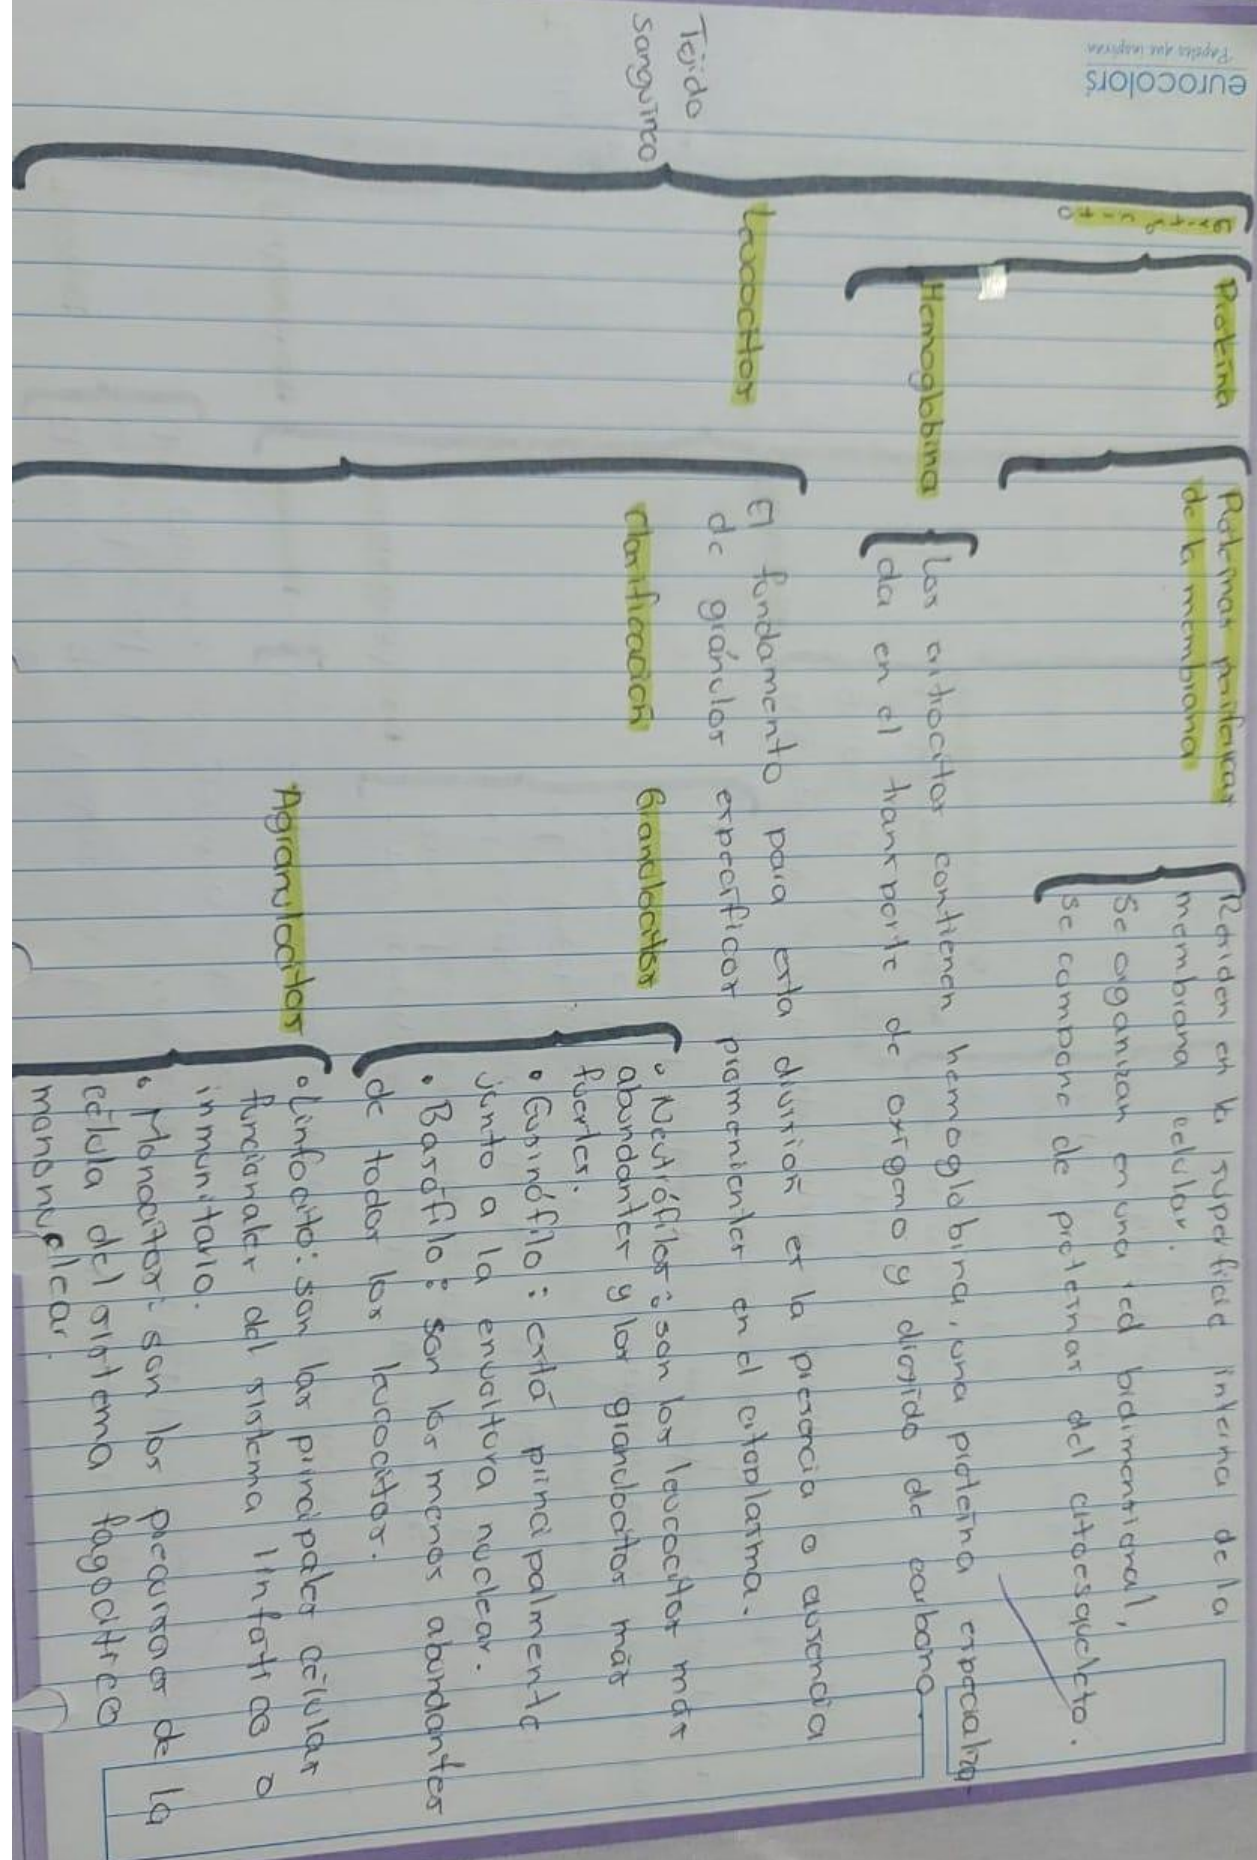 eurocolors
Papeles que inspiran
Tejido
sanguíneo
Eritrocito
Proteína
Proteínas periféricas
de la membrana
Residen en la superficie interna de la
membrana celular.
Se organizan en una red bidimensional,
se compone de proteínas del citoesqueleto.
Hemoglobina
Los eritrocitos contienen hemoglobina, una proteína especializa-
da en el transporte de oxígeno y dioxido de carbono
Leucocitos
El fundamento para esta división es la presencia o ausencia
de gránulos específicos promenientes en el citoplasma.
Clasificación
Granulocitos
• Neutrófilos: son los leucocitos más
abundantes y los granulocitos más
fuertes.
• Eusinófilo: está principalmente
junto a la envoltura nuclear.
• Basófilo: son los menos abundantes
de todos los leucocitos.
Agranulocitos
• Linfocito: son las principales células
funcionales del sistema linfático o
inmunitario.
• Monocitos: son los precursores de la
célula del sistema fagocítico
mononuclear.